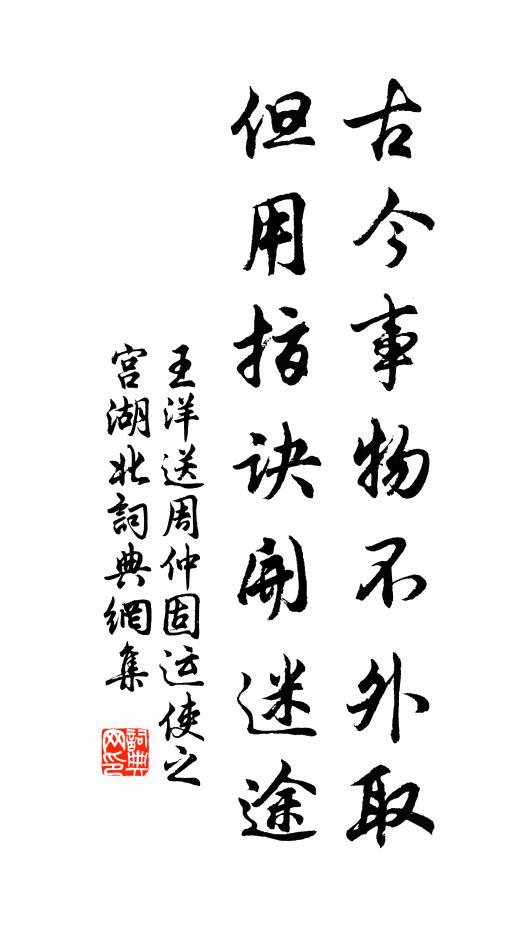 古今事物不外取
但用指诀開迷途
王洋送周仲固运使之
宫湖北詞典網集
詞典网印